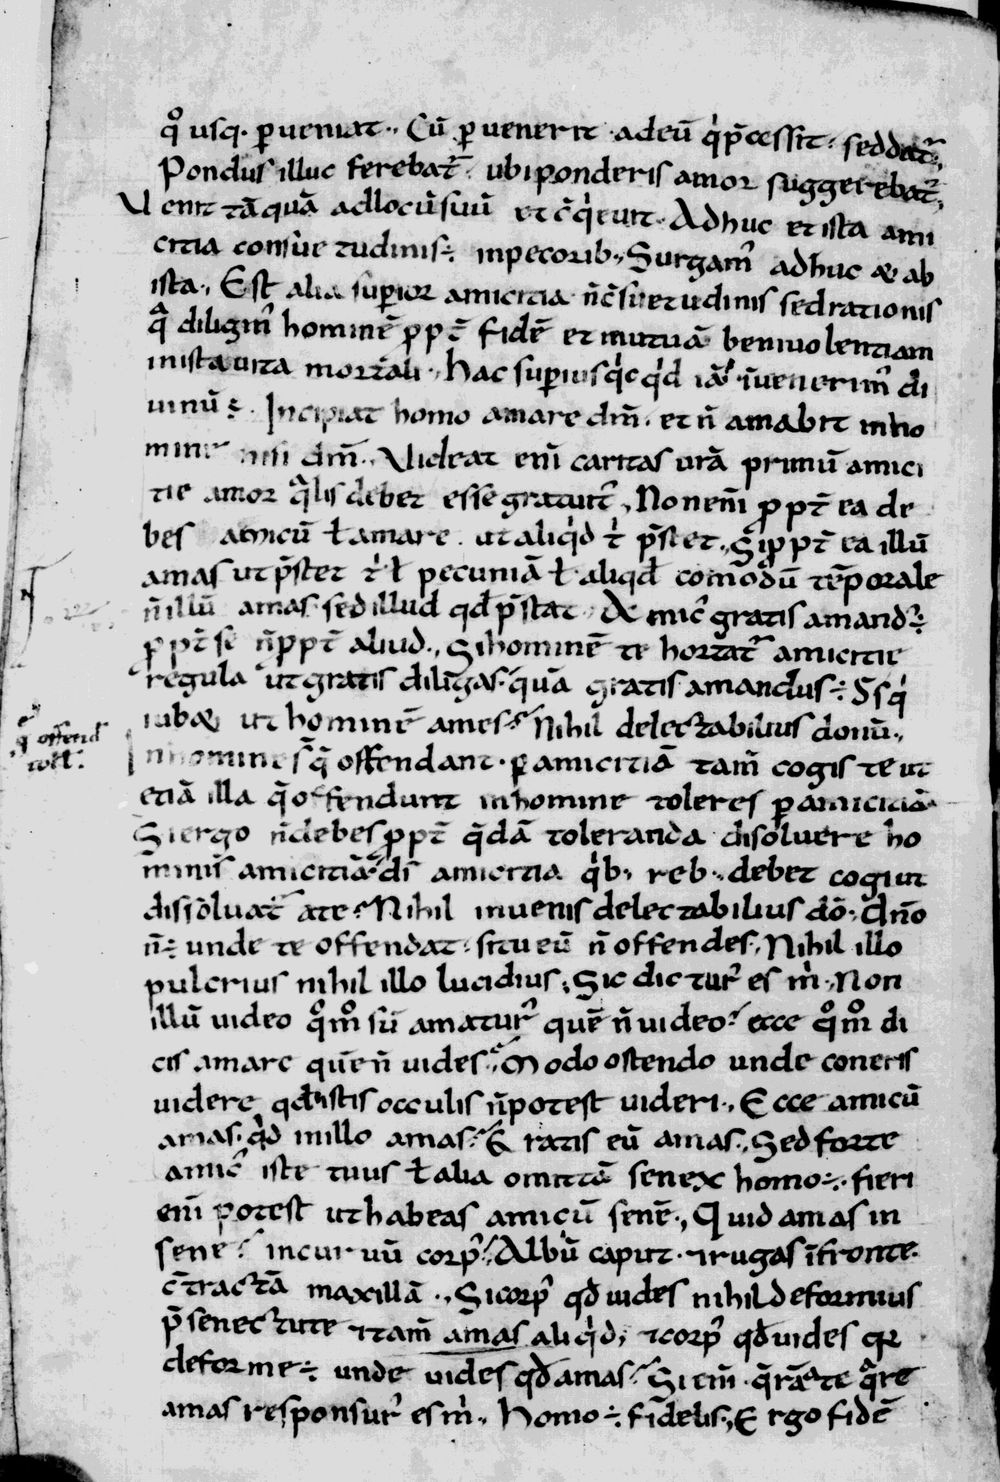 qͦ usq· ꝑueniat·, Cū ꝑuenerit ·adeū q̍ p̄cessit· sed dat᷑,
Pondus illuc ferebat᷑· ubi ponderis amor suggerebat᷑,
Venit tā quā ad locū suū et c̄q̍euit· Adhuc et ista ami
citia consuetudinis÷ in pecorib·, Surgam᷒ adhuc & ab
ista·, Est alia suꝑior amicitia n̄ c̄suetudinis sed rationis
qͣ diligim᷒ hominē ꝓpt̄ fidē et mutuā beniuolentiam
in ista uita mortali·, hac suꝑius q̍cq̍d iā inuenerim᷒ di
uinū÷· Incipiat homo amare dm̄· et n̄ amabit in ho
mine nisi dm̄·, Videat eni̅ caritas ur̄ā primū amici
tie amor qͣlis debet esse gratuit᷒, Non eni̅ ꝓpt̄ ea de
bes amicū ł amare ut aliq̍d t̍ p̄stet·, Si ꝓpt̄ ea illū
amas ut p̄stet t̍ ł pecuniā ł aliqd̄ comodū tēporale
n̄ illū amas sed illud qd̄ p̄stat· Amic᷒ gratis amand᷒÷
ꝓpt̄ se n̄ ꝓpt̄ aliud·, Si hominē te hortat᷑ amicitie
regula ut gratis diligas· quā gratis amandus÷ Ds̄ q̍
iub& ut hominē ames· Nihil delectabilius do nū·,
In homine s̄ q̄ offendant· ꝑ amicitiā tam̄ cogis te ut
etiā illa q̄ offendunt in homine toleres ꝑ amicitiā
Si ergo n̄ debes ꝓpt̄ q̄dā toleranda disoluere ho
minis amicitiā· di̅ amicitia q̍b·, reb·, debet cogi ut
dissoluat᷑ a te· Nihil inuenis delectabilius dō· Dn̄o
n̄÷ unde te offendat· si tu eū n̄ offendes·, Nihil illo
pulcrius nihil illo lucidius·, Sic dictur᷒ es m̍·, Non
illū uideo qͦm̄ sū amatur᷒ quē n̄ uideo· ecce qͦm̄ di
cis amare quē n̄ uides· Modo ostendo unde coneris
uidere qd̄ istis occulis n̄ potest uideri·, Ecce amicū
amas· q̍d in illo amas· Gratis eū amas·, Sed forte
amic᷒ iste tuus ł alia omittā senex homo÷· fieri
eni̅ potest ut habeas amicū senē·, Quid amas in
sene· incuruū corp᷒· Albū caput· ⁊ rugas ī fronte·
c̄tractā maxillā·, Si corp᷒ qd̄ uides nihil deformius
p̄ senectute ⁊ tam̄ amas aliq̍d, ⁊ corp᷒ qd̄ uides
deforme÷ unde uides qd̄ amas· Si eni̅ q̄rā a te qͣre
amas responsur᷒ es m̍·, homo÷ fidelis·, Ergo fidē
q̄ offend
toll